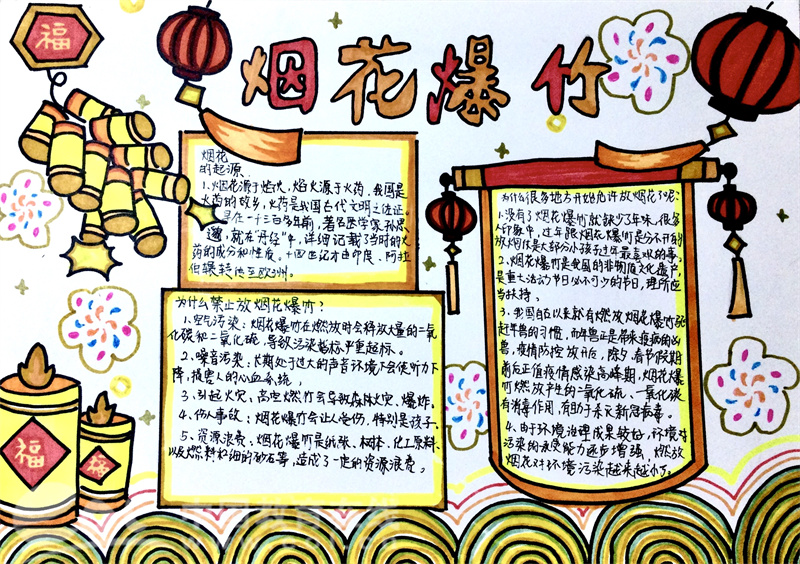 福
烟花爆竹
烟花
的起源
1、烟花源于焰火，焰火源于火药，我国是
火药的故乡，火药是我国古代文明之佐证。
早在一千三百多年前，著名医学家孙思
邈，就在"丹经"中，详细记载了当时的火
药的成分和性质。十四世纪才由印度、阿拉
伯辗转传至欧洲。
为什么禁止放烟花爆竹？
1、空气污染：烟花爆竹在燃放时会释放大量的二氧
化碳和二氧化硫，导致污染指标严重超标。
2、噪音污染：长期处于过大的声音环境下会使听力下
降，损害人的心血系统，
3、引起火灾，高空燃竹会导致森林火灾、爆炸。
4、伤人事故：烟花爆竹会让人受伤，特别是孩子、
5、资源浪费：烟花爆竹是纸张、树木、化工原料、
以及燃料和细的砂石等，造成了一定的资源浪费，
为什么很多地方开始允许放烟花了呢？
1、没有了烟花爆竹就缺少了年味，很多
人印象中，过年跟烟花爆竹是分不开的
放烟花是大部分小孩子过年最喜欢的事，
2、烟花爆竹是我国的非物质文化遗产，
是重大活动节日必不可少的节目，理所应
当扶持，
3、我国自古以来就有燃放烟花爆竹驱
赶年兽的习惯，而年兽正是带来疫病的凶
兽，疫情防控放开后，除夕、春节假期
前后正值疫情感染高峰期，烟花爆
竹燃放产生的二氧化硫、一氧化碳
有消毒作用，有助于杀灭新冠病毒。
4、由于环境治理成果较好，环境对
污染的承受能力逐步增强，燃放
烟花对环境污染越来越小了。
福
福